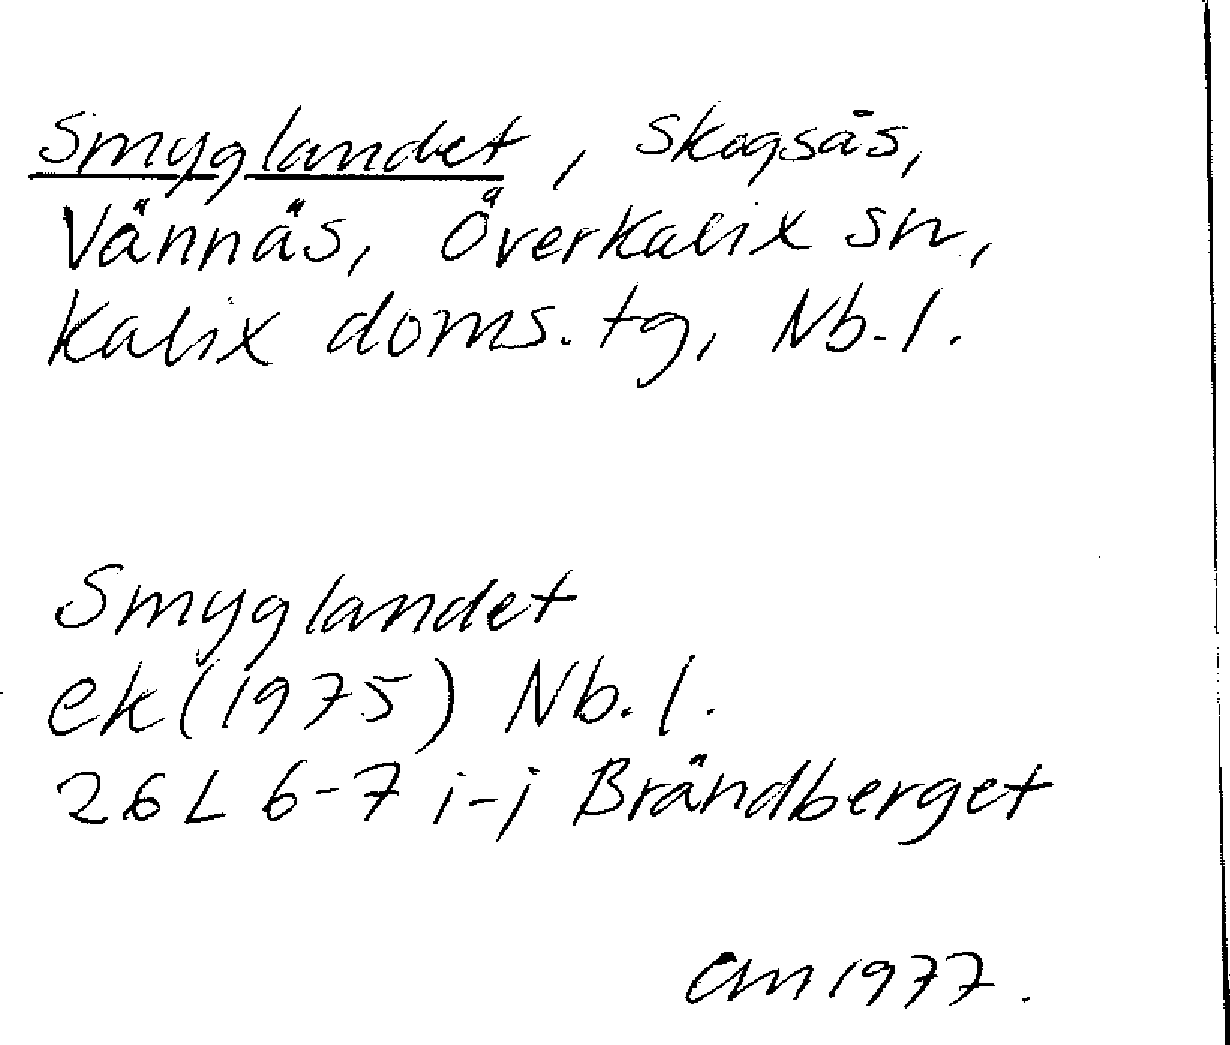 Smyglandet, skogsås,
Vännäs, Överkalix sn,
Kalix doms. tg, Nb. l.
Smyglandet
ek (1975) Nb. l.
26 L 6-7 i-j Brändberget
CM 1977.